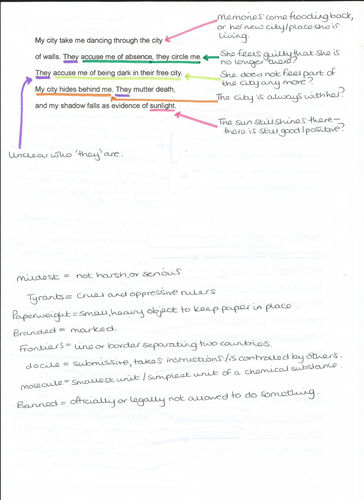 Memories come flooding back,
or her new city/place she is
living.
My city take me dancing through the city
of walls. They accuse me of absence, they circle me.
She feels guilty that she is
no longer there?
They accuse me of being dark in their free city.
She does not feel part of
the city any more?
My city hides behind me. They mutter death,
The city is always with her?
and my shadow falls as evidence of sunlight.
The sun still shines there -
there is still good/positive?
Unclear who 'they' are.
Mildest = not harsh, or serious
Tyrants = Cruel and oppressive rulers
Paperweight = small, heavy object to keep paper in place.
Branded = marked.
Frontiers = line or border separating two countries.
docile = submissive, takes instructions/is controlled by others.
molecule = smallest unit/simplest unit of a chemical substance.
Banned = officially or legally not allowed to do something.